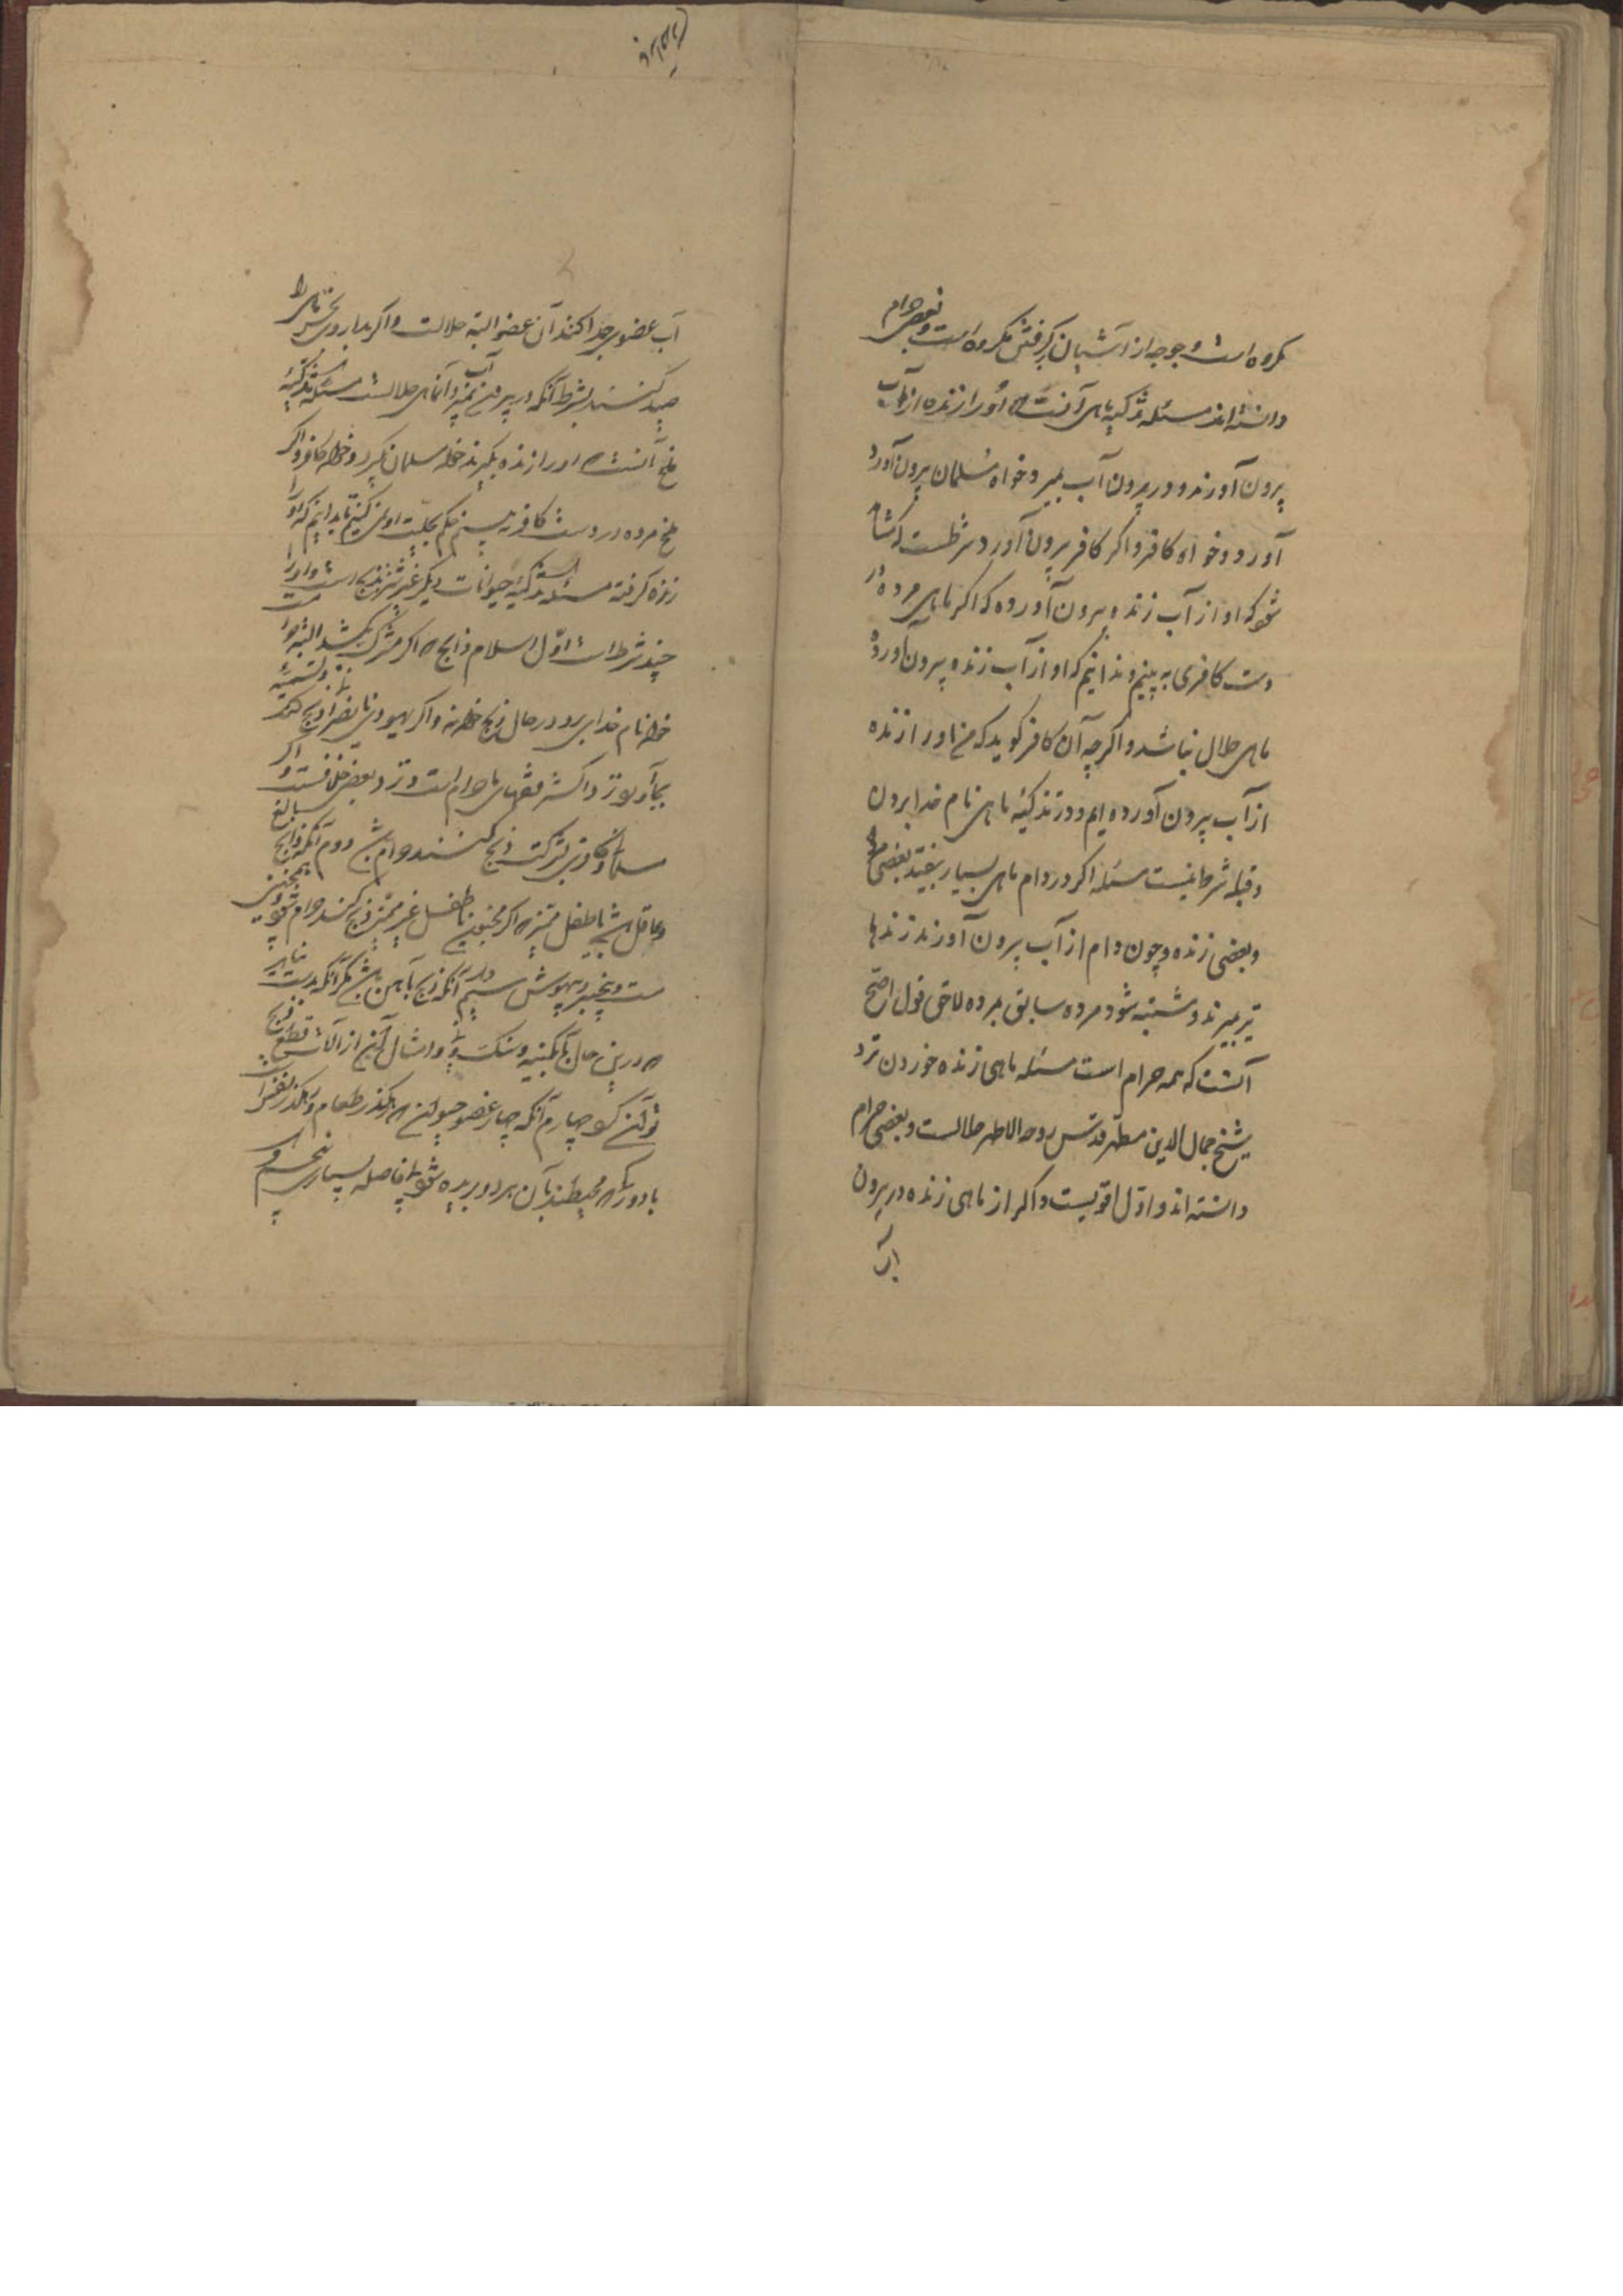 مکروه است و جوجه از آشیان گرفتن مکروه است و بعضی حرام
دانسته‌اند مسئله تذکیه ماهی آنست که او را زنده از آب
بیرون آورند و در بیرون آب بمیرد خواه مسلمان بیرون آورد
آورد و خواه کافر و اگر کافر بیرون آورد شرطست که مشاهده
شود که او از آب زنده بیرون آورده که اگر ماهی مرده در
دست کافری به بینیم و ندانیم که او از آب زنده بیرون آورده
ماهی حلال نباشد و اگرچه آن کافر گوید که من او را زنده
از آب بیرون آورده‌ایم و در تذکیه ماهی نام خدا بردن
و قبله شرط نیست مسئله اگر در دام ماهی بسیار بیفتد بعضی مرده
و بعضی زنده و چون دام از آب بیرون آورند زندها
نیز بمیرند و مشتبه شود مرده سابق بمرده لاحق قول اصح
آنست که همه حرام است مسئله ماهی زنده خوردن نزد
شیخ جمال الدین مطهر قدس روحه الاطهر حلالست و بعضی حرام
دانسته‌اند و اول اقویست و اگر از ماهی زنده در بیرون
آب
آب عضوی جدا کنند آن عضو البته حلالست و اگر بداروی ماهی را
صید کنند بشرط آنکه در بیرون آب بمیرد آن ماهی حلالست مسئله تذکیه
ملخ آنست که او را زنده بگیرند خواه مسلمان گیرد و خواه کافر و اگر
ملخ مرده در دست کافر به بینیم حکم بحلیت او نمی کنیم تا بدانیم که او را
زنده گرفته است مسئله تذکیه حیوانات دیگر غیر شتر ذبح است و او را
چند شرط است اول اسلام ذابح که اگر مشرک بکشد البته حرام است
خواه نام خدای برد در حال ذبح خواه نه و اگر یهودی یا نصرانی ذبح کند و تسمیه
بجا آورد نزد اکثر فقهای ما حرام است و نزد بعضی خلافست و اگر
مسلمان و کافر بشرکت ذبح کنند حرام باشد دوم آنکه ذابح بالغ
و عاقل باشد یا طفل ممیز که اگر مجنون یا طفل غیر ممیز ذبح کند حرام شود همچنین
مست و بیخبر و بیهوش سیم آنکه ذبح بآهن باشد مگر آنکه بدست نیاید
که درین حال بآبگینه و سنگ و نی و امثال آن از آلات قطع ذبح
توان کرد چهارم آنکه چهار عضو حیوان که راهگذر طعام و راهگذر نفس است
با دو رگ که محیطند بآن هر دو بریده شود بی فاصله بسیاری پنجم